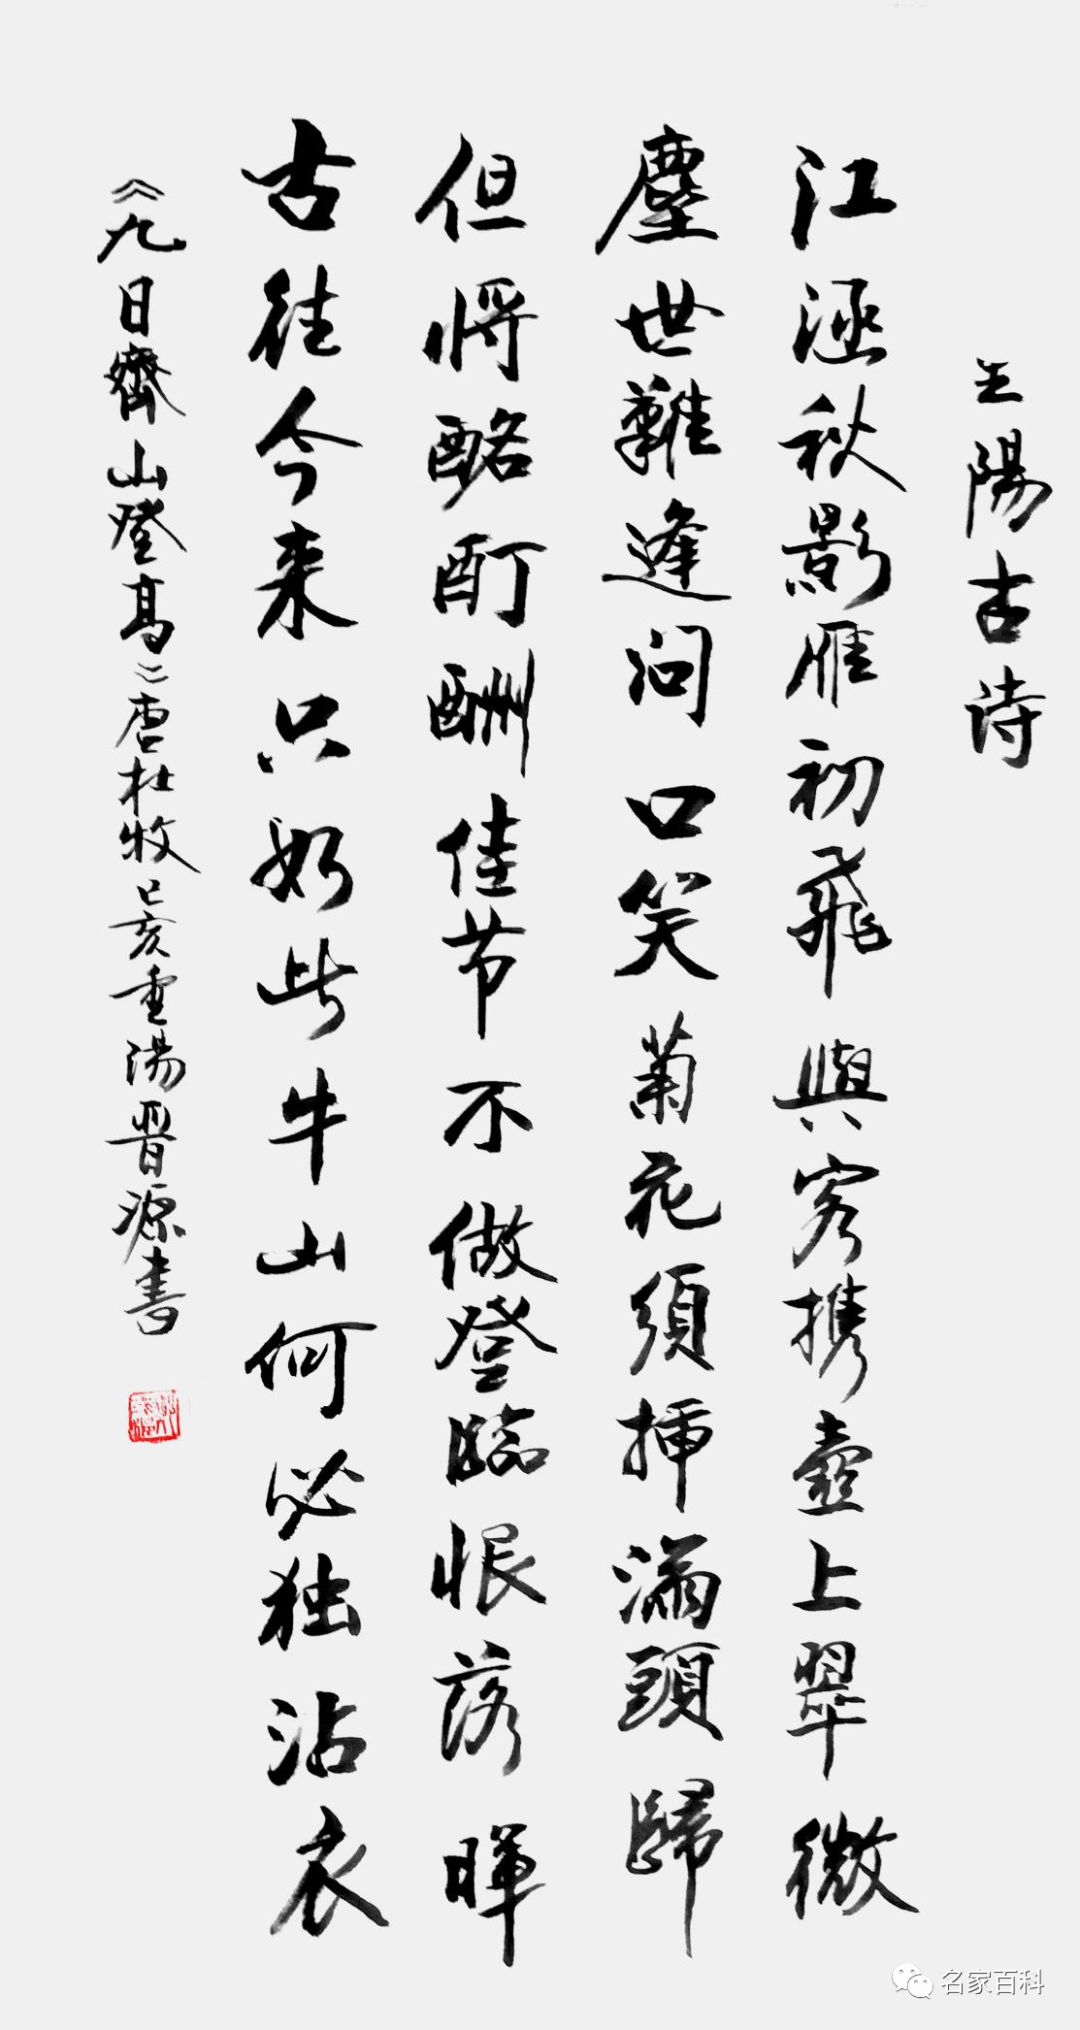 重陽古诗
江涵秋影雁初飛與客携壺上翠微
塵世難逢问口笑菊花須插滿頭歸
但将酩酊酬佳节不做登臨恨落暉
古往今来只如此牛山何必独沾衣
《九日齊山登高》唐杜牧己亥重陽晋源書
名家百科